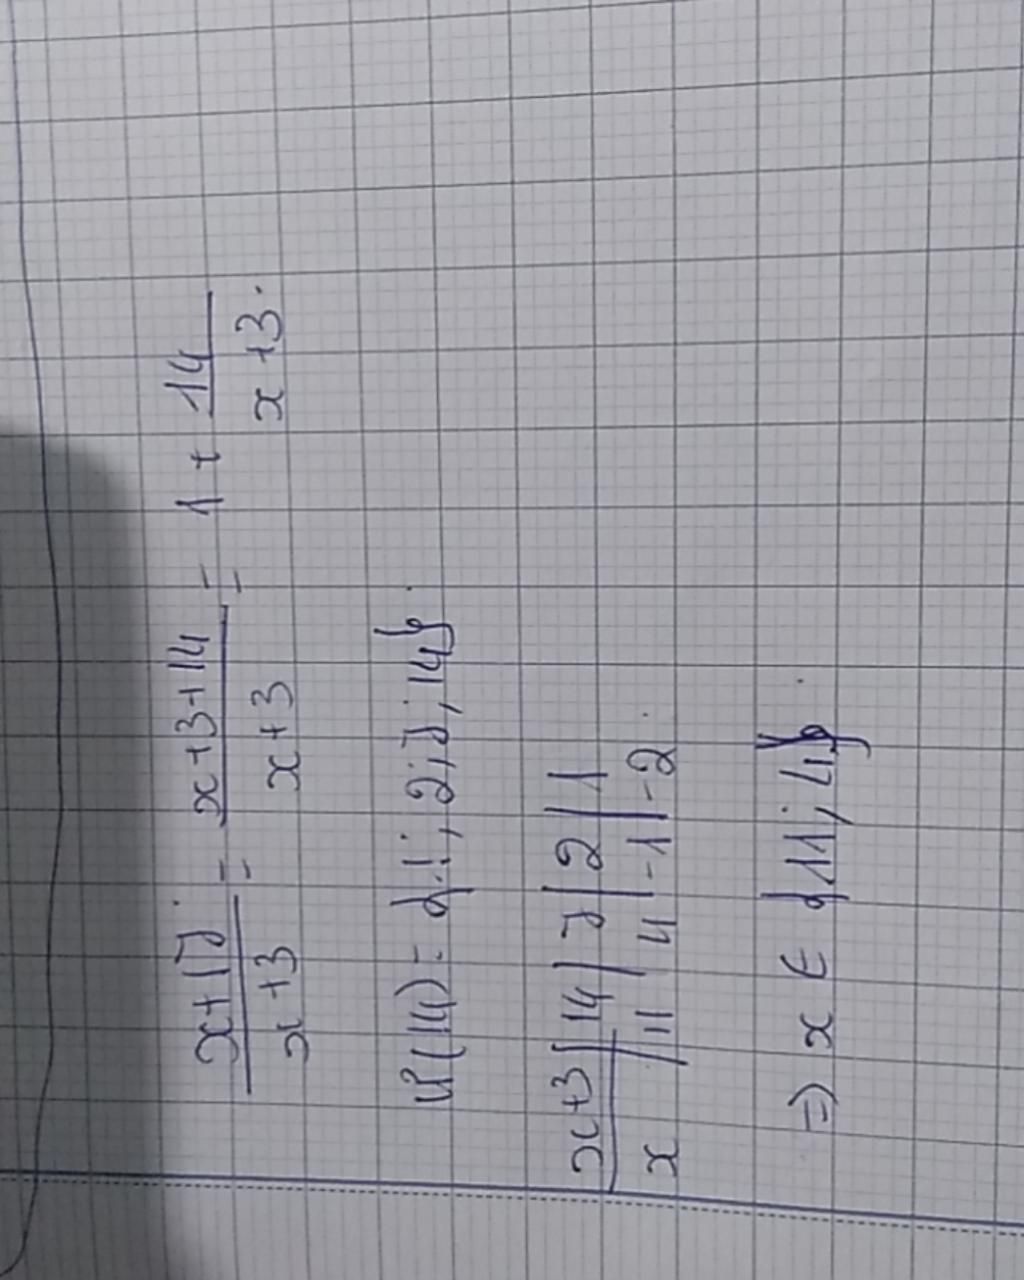 x+17 / x+3 = x+3+14 / x+3 = 1 + 14 / x+3.
Ư(14) = {1; 2; 7; 14}.
x+3 | 14 | 7 | 2 | 1
x | 11 | 4 | -1 | -2
=> x ∈ {11; 4}.